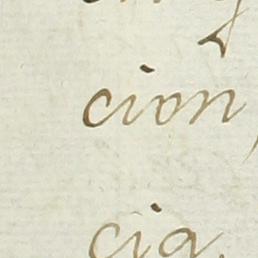 cion,
cia